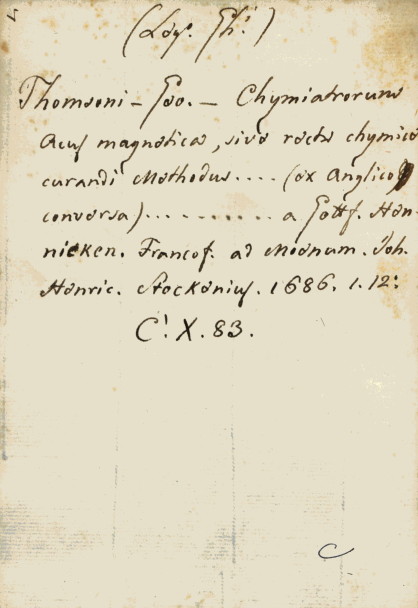 (Log. Ph!)
Thomsoni - Geo. - Chymiatrorum
Acus magnetica, sive recte chymice
curandi Methodus .... (ex Anglico
conversa) .......... a Gottf. Hen-
nicken. Francof. ad Moenum. Joh.
Henric. Stockenius. 1686. 1. 12:
C! X. 83.
C